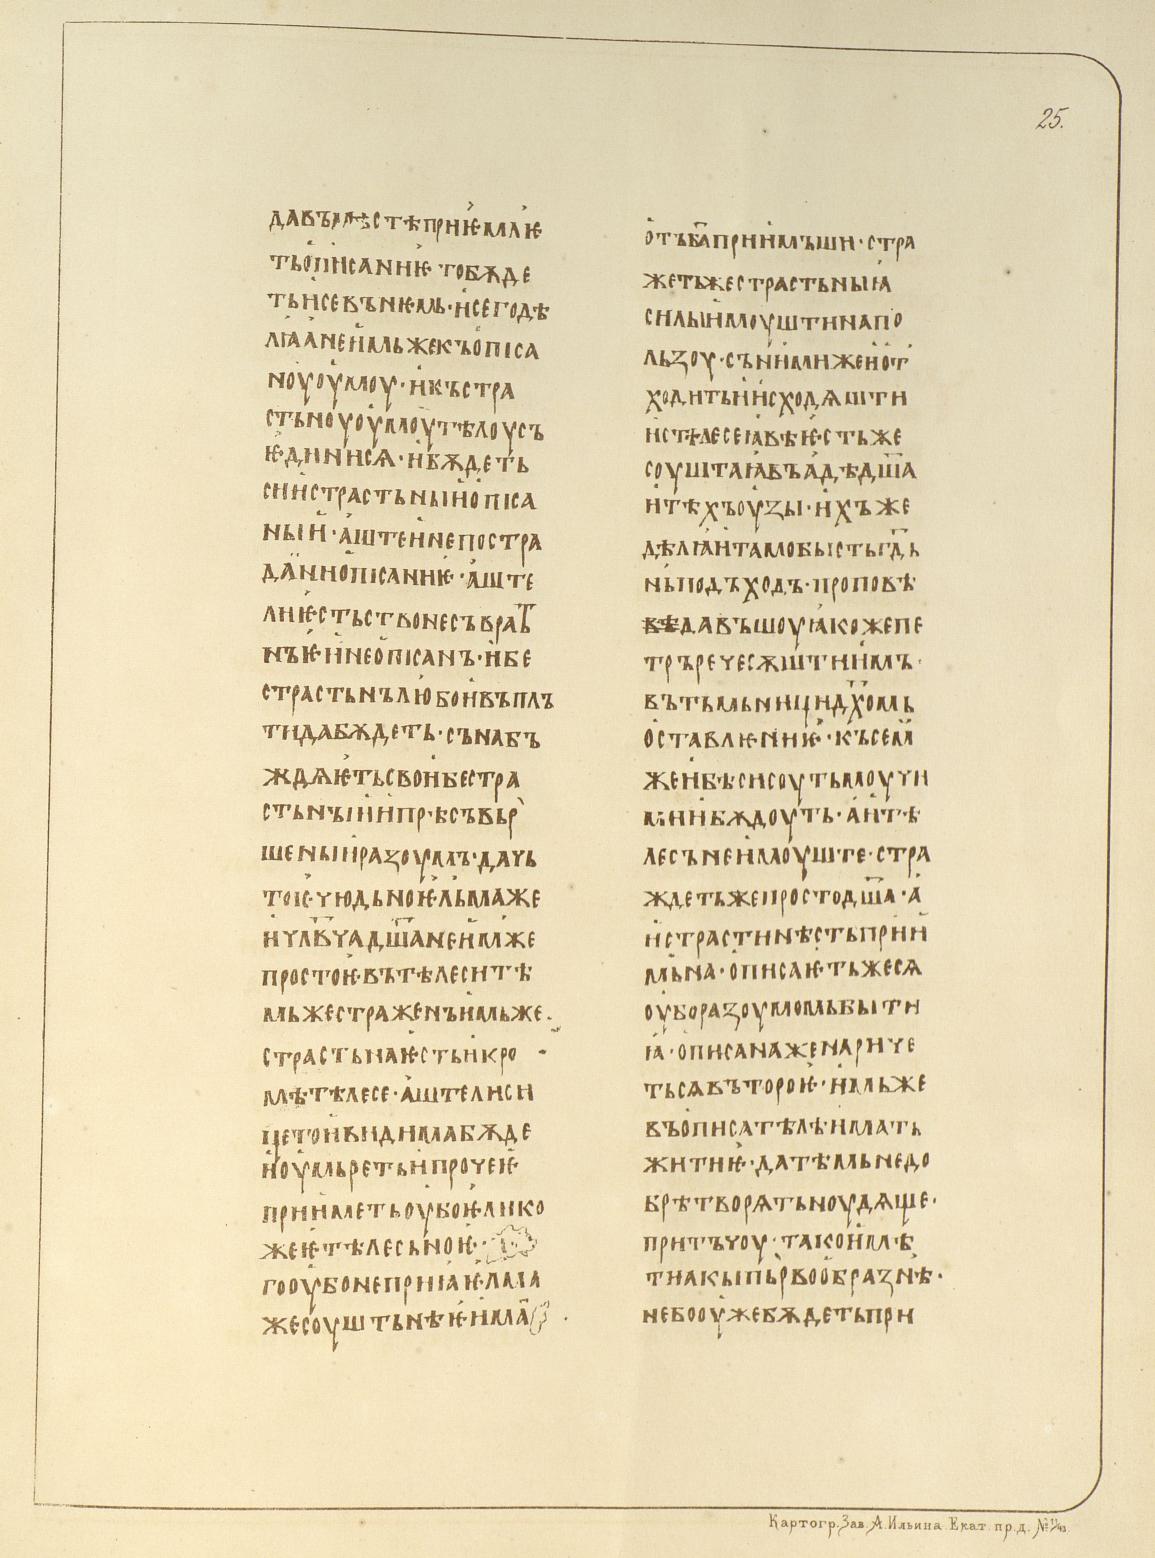 25.
давъмѣстѣприѥмлѥ
тьописаниѥ·тобѫде
тьисевънѥмь·исегодѣ
лꙗанеимьжекъописа
ноуоумоу·икъстра
стьноуоумоутѣлоусъ
ѥдинисѧ·ибѫдеть
сиистрастьныиописа
ныи·аштеинепостра
даниописаниѥ·аште
лиѥстьствонесъвраt
нъѥ·инеописанъ·ибе
страстьнълюбоивъплъ
тидабѫдеть·сънабъ
ждѫѥтьсвоибестра
стьныиипрѣсъвьр
шеныиразоумъ·дачь
тоѥ·чюдьноѥ·льмаже
ичлвчадшанеимже
простоѥ·вътѣлеситѣ
мьжестраженъимьже·
страстьнаѥстьикро
мѣтѣлесе·аштелиси
цетоивидимабѫде
иоумьретьипрочеѥ
прииметьоубоѥлико
жеѥ·тѣлесьноѥ·
гооубонеприꙗѥмлꙗ
жесоуштьнѣѥима·
отъбаприимъши·стра
жетьжестрастьныꙗ
силыимоуштинапо
льзоу·сънимижеиот
ходитьиисходѧшти
истѣлесеꙗвѣѥстьже
соуштаꙗвъадѣдша
итѣхъоузы·ихъже
дѣлꙗитамобыстьгдь
ньподъходъ·проповѣ
вѣдавъшоуꙗкожепе
тръречесѫштиимъ·
вътьмьницидхомь
оставлѥниѥ·късем
жеибѣсисоутьмоучи
миибѫдоуть·аитѣ
лесънеимоуште·стра
ждетьжепростодша·а
истрастинѣстьприи
мьна·описаѥтьжесѧ
оуборазоумомьбыти
ꙗ·описанаженариче
тьсѧвътороѥ·имьже
въописатѣлѣимать
житиѥ·датѣмьнедо
брѣтворѧтьноудѧще·
притъчоу·такоимѣ
тиакыпьрвообразнѣ·
небооужебѫдетьпри
Картогр. Зав. А. Ильина. Екат. пр. д. № 11/43.